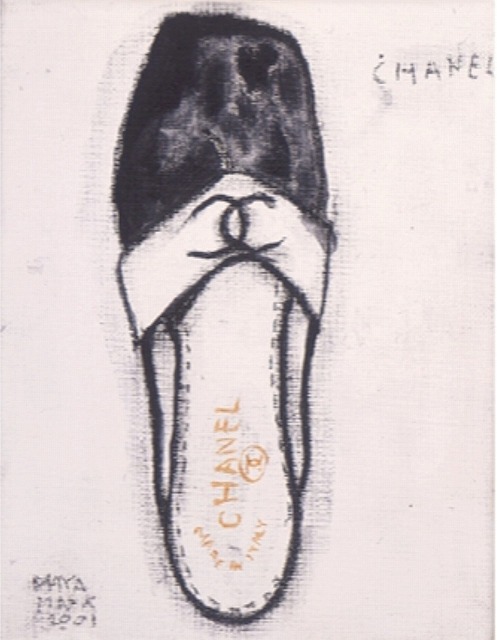 CHANEL
CHANEL
MADE IN ITALY
MAYA
MARK
2001